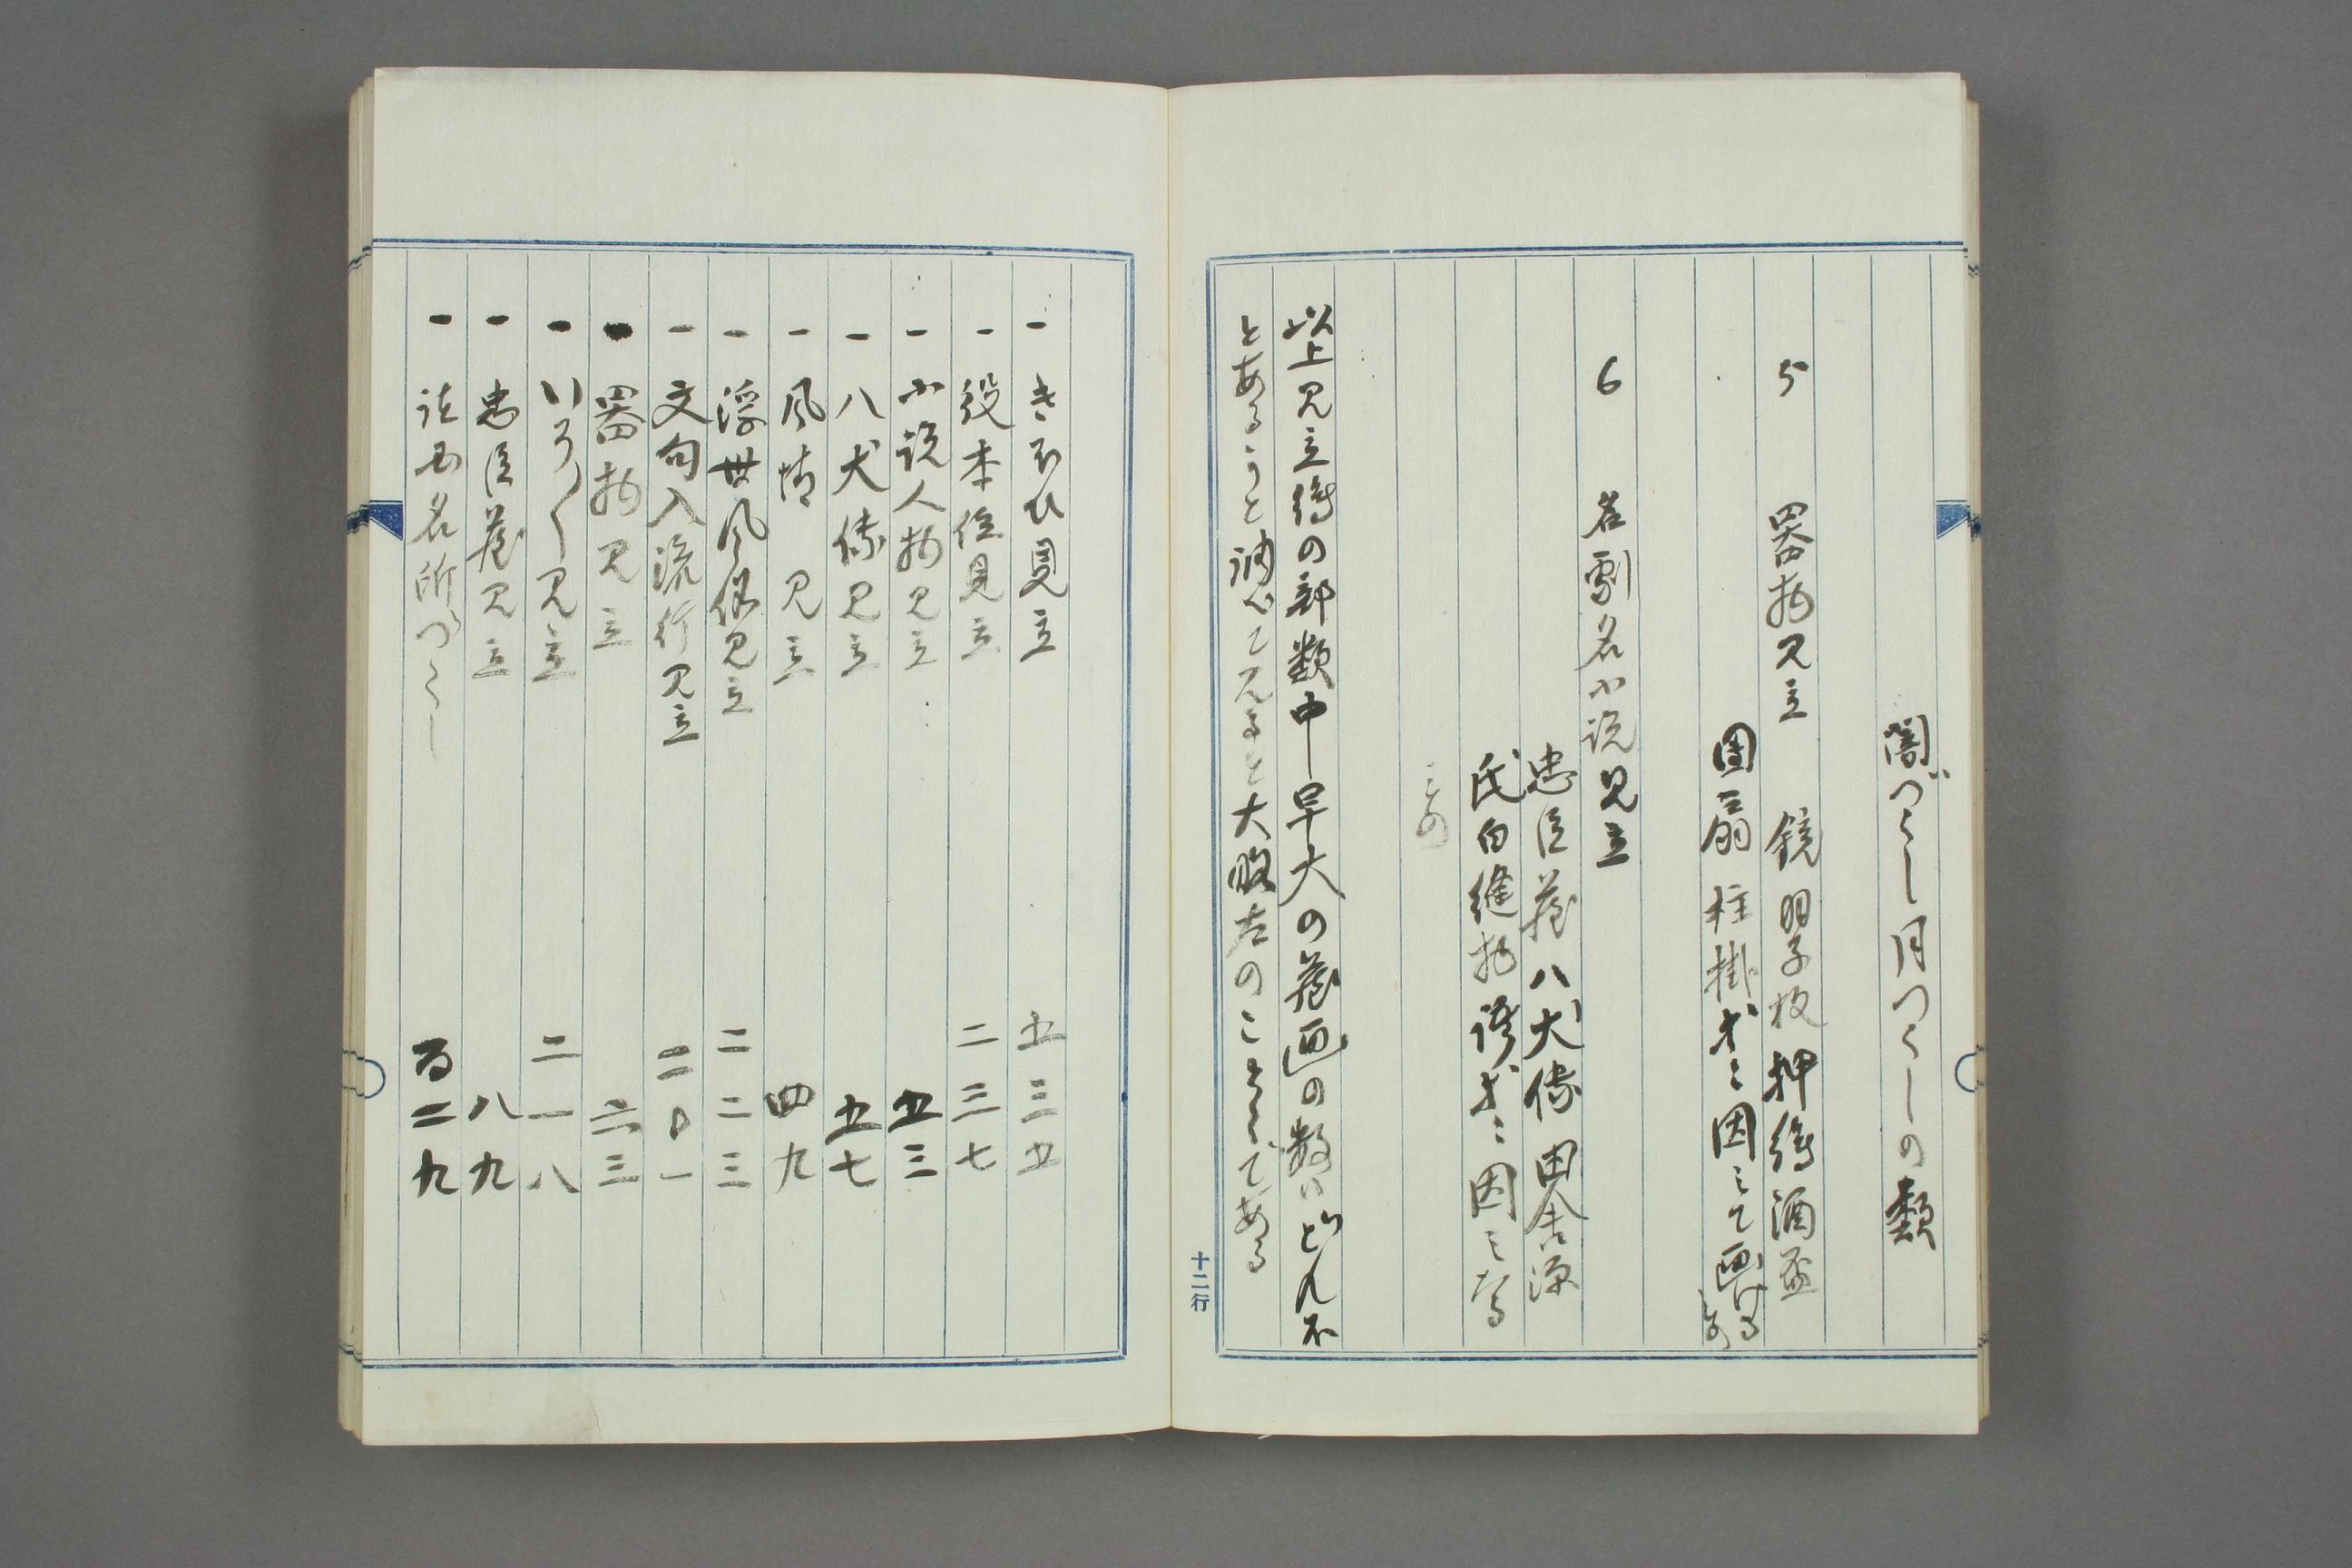 闇づくし月つくしの類
5 器物見立 鏡 羽子板 押絵 酒盃
団扇 柱掛 才ニ因ミて画ける
もの
6 名劇名小説見立
忠臣蔵 八犬伝 田舎源
氏 白縫物語 才ニ因ミたる
もの
以上見立絵の部類中早大の蔵画の数はどれ本
とあるかと調べて見ると大略左のことくである
十二行
一 きそひ見立 五三五
一 役本位見立 二三七
一 小説人物見立 五三
一 八犬伝見立 五七
一 風情見立 四九
一 浮世風俗見立 二二三
一 文句入流行見立 二〇一
一 器物見立 六三
一 いろ〱見立 二一八
一 忠臣蔵見立 八九
一 諸国名所づくし 百二九